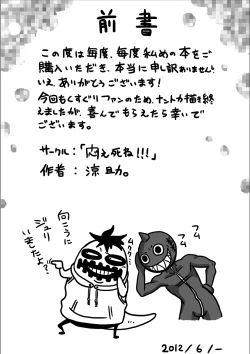 前書
この度は毎度、毎度私めの本をご
購入いただき、本当に申し訳ありません。
いえ、ありがとうございます！
今回もくすぐりファンのため、ナントカ描き終
えましたが、喜んでもらえたら幸いで
ございます。
サークル：「悶え死ね!!!」
作者：涼助。
向こうに
ジュリ
いきたよ？
ムクク…
フム
フム
2012/6/-